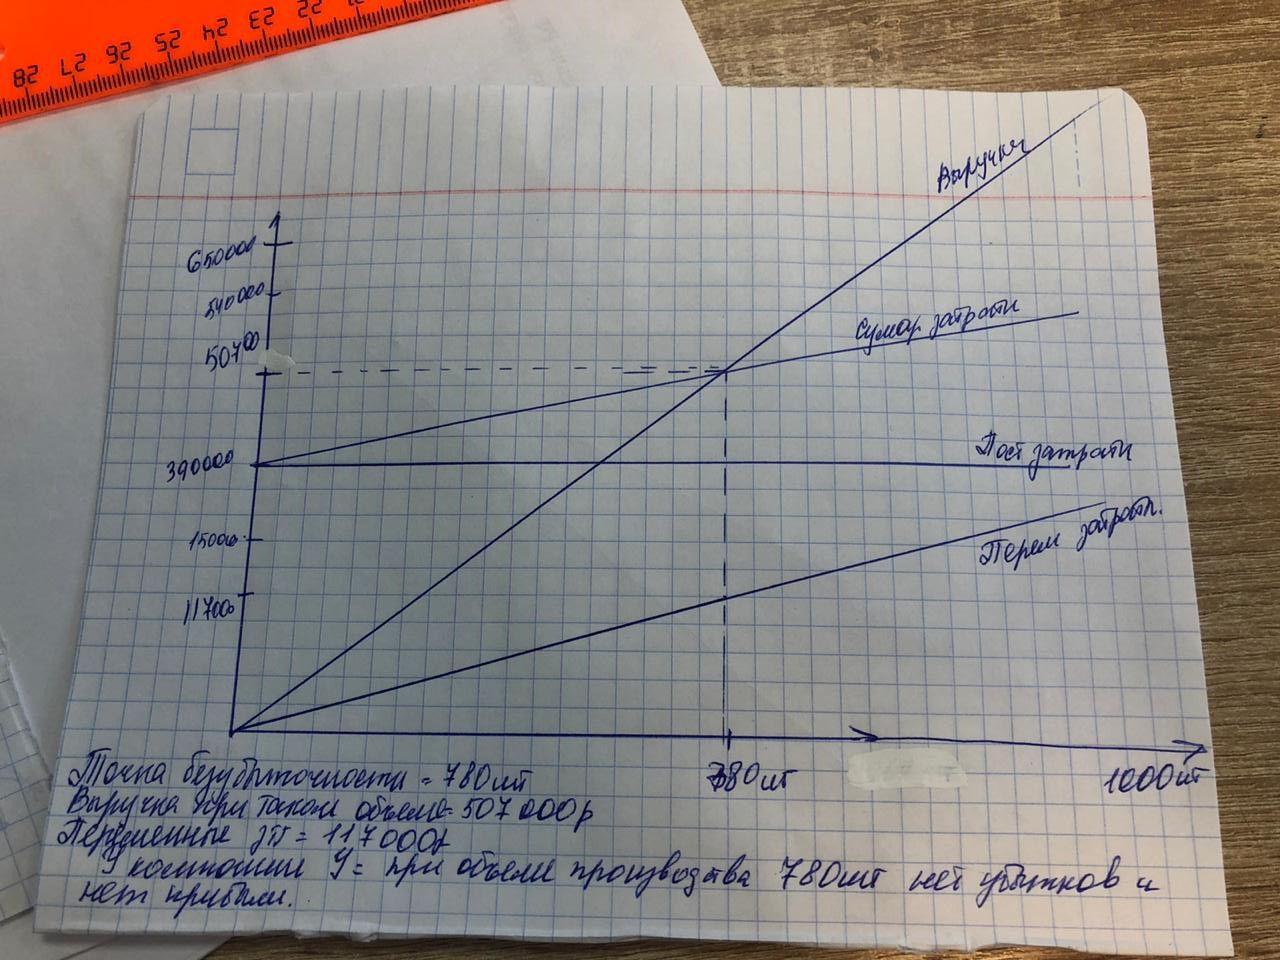 28 27 26 25 24 23 22 21
Выручка
650000
540000
Сумар. затраты
50700
Пост затраты
390000
Перем затраты.
15000
11700
Точка безубыточности = 780шт
780шт
1000шт
Выручка при таком объеме = 507 000р
Переменные зп = 117 000р
У компании У = при объеме производства 780шт нет убытков и
нет прибыли.